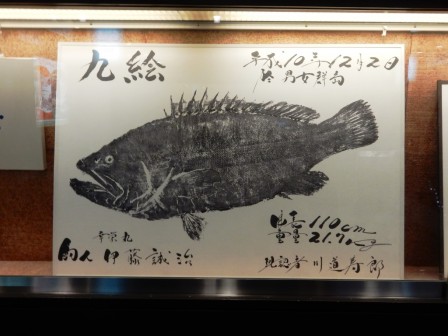 九絵
平成10年12月2日
於 男女群島
身丈 110cm
重量 21.7kg
幸栄丸
釣人 伊藤誠治
現認者 川道寿郎